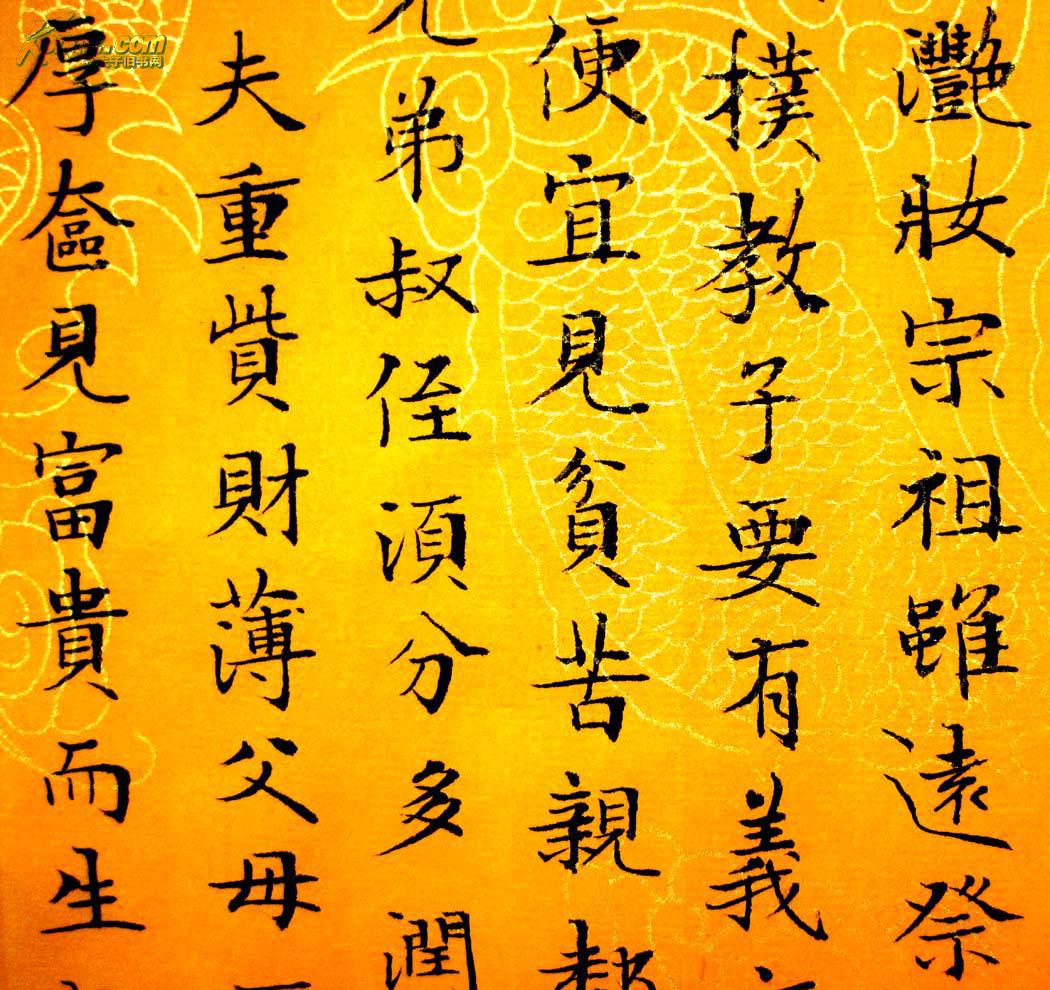 灧妝宗祖雖遠祭
樸教子要有義
便宜見貧苦親
弟叔侄須分多潤
夫重貲財薄父母
厚奩見富貴而生
.com
子旧书网